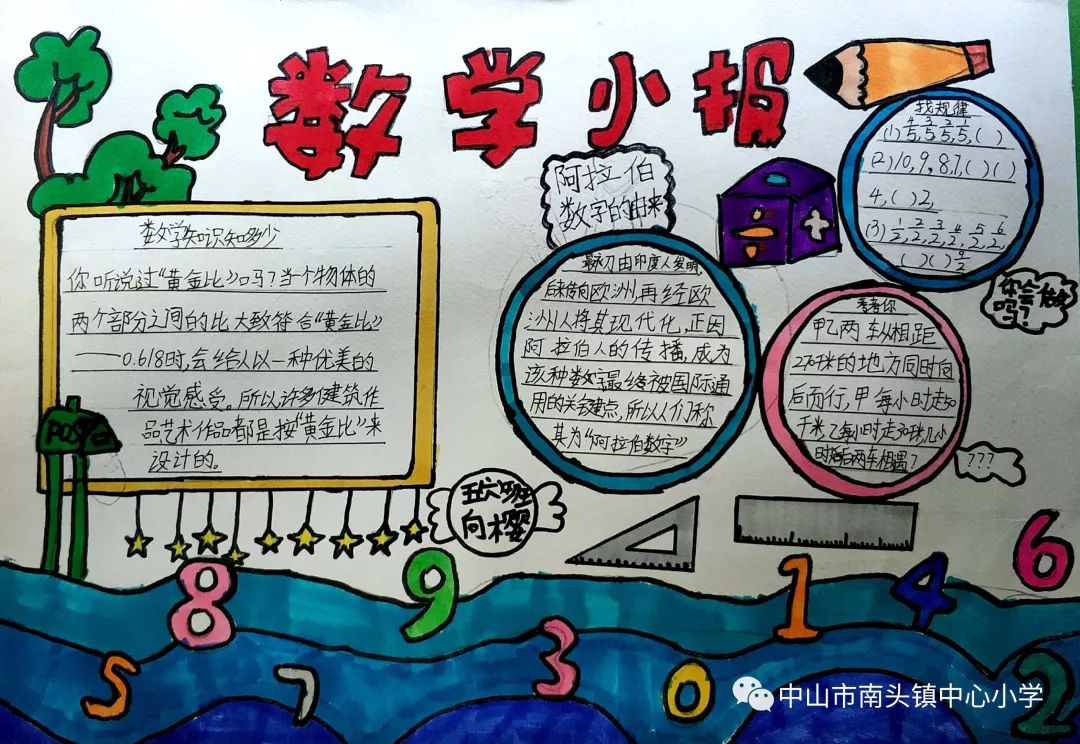 数学小报
数学知识知多少
你听说过“黄金比》吗?当个物体的
两个部分之间的比大致符合“黄金比》
——0.618时,会给人以一种优美的
视觉感受。所以许多建筑作
品艺术作品都是按“黄金比》来
设计的。
五六班
向樱
阿拉伯
数字的由来
最初由印度人发明,
后来传向欧洲,再经欧
洲人将其现代化,正因
阿拉伯人的传播,成为
该种数字最终被国际通
用的关键点,所以人们称
其为“阿拉伯数字》
找规律
(1) 4/5, 3/5, 2/5, 1/5, ( )
(2) 10, 9, 8, 7, ( ) ( )
4, ( ) 2,
(3) 1/2, 2/2, 3/2, 4/2, 5/2, 6/2,
( ) ( ) 9/2
你会做
吗?
考考你
甲乙两车相距
米的地方同时向
后而行,甲每小时走50
千米,乙每小时走30米,几小
时后两车相遇?
???
8
9
1
4
6
5
7
3
0
2
中山市南头镇中心小学